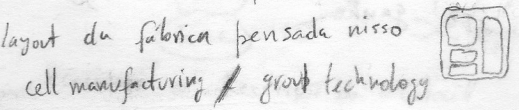 layout da fábrica pensada nisso
cell manufacturing / group technology